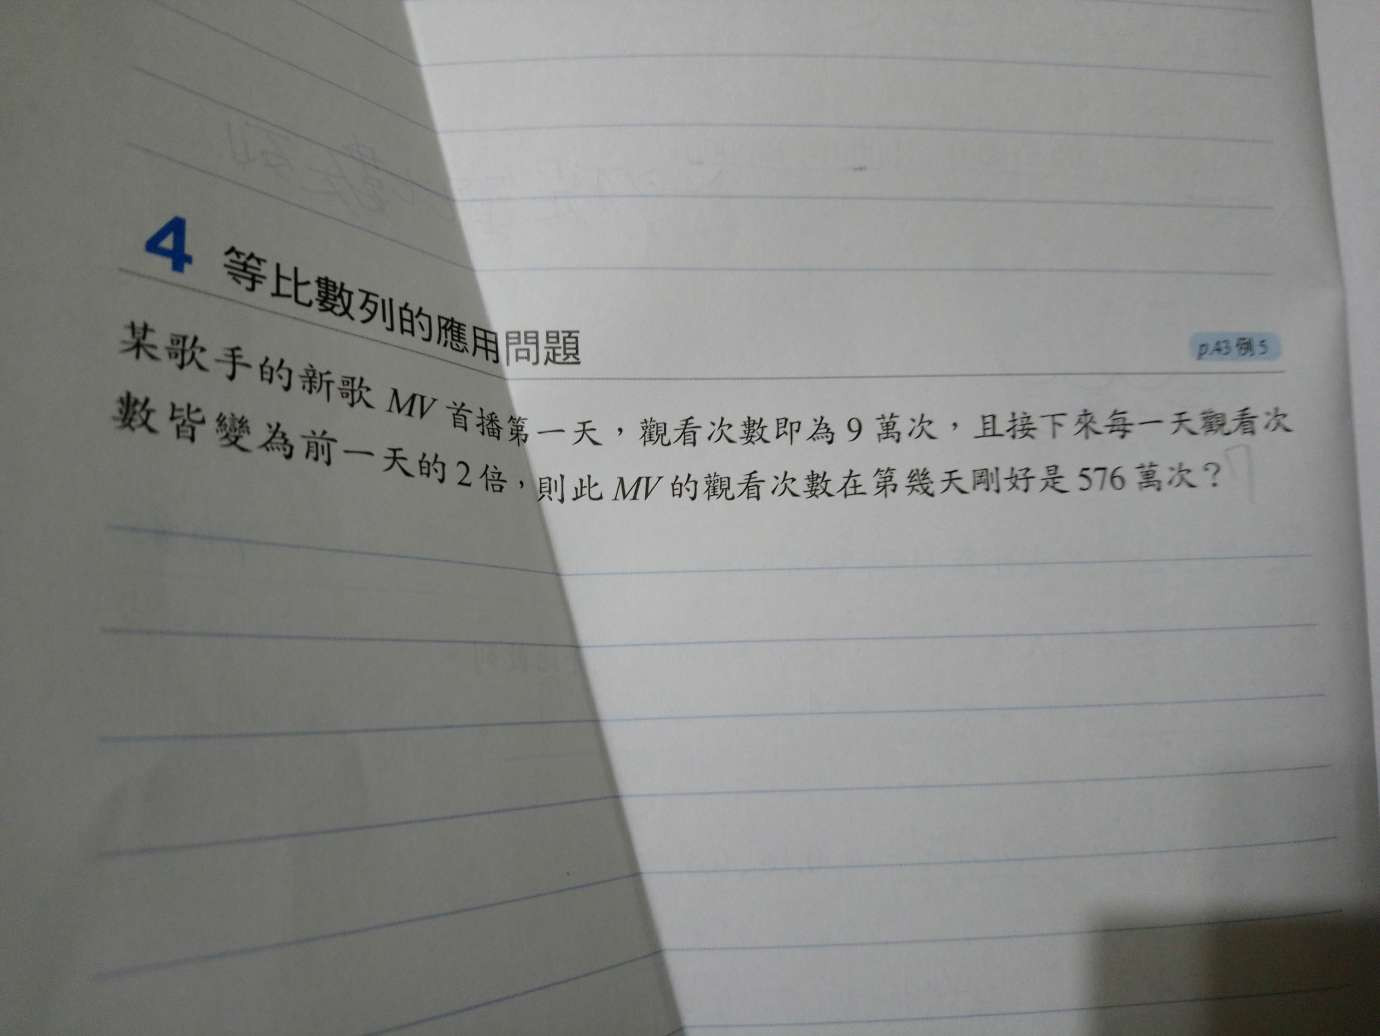 4 等比數列的應用問題
p.43 例 5
某歌手的新歌 MV 首播第一天，觀看次數即為 9 萬次，且接下來每一天觀看次
數皆變為前一天的 2 倍，則此 MV 的觀看次數在第幾天剛好是 576 萬次？